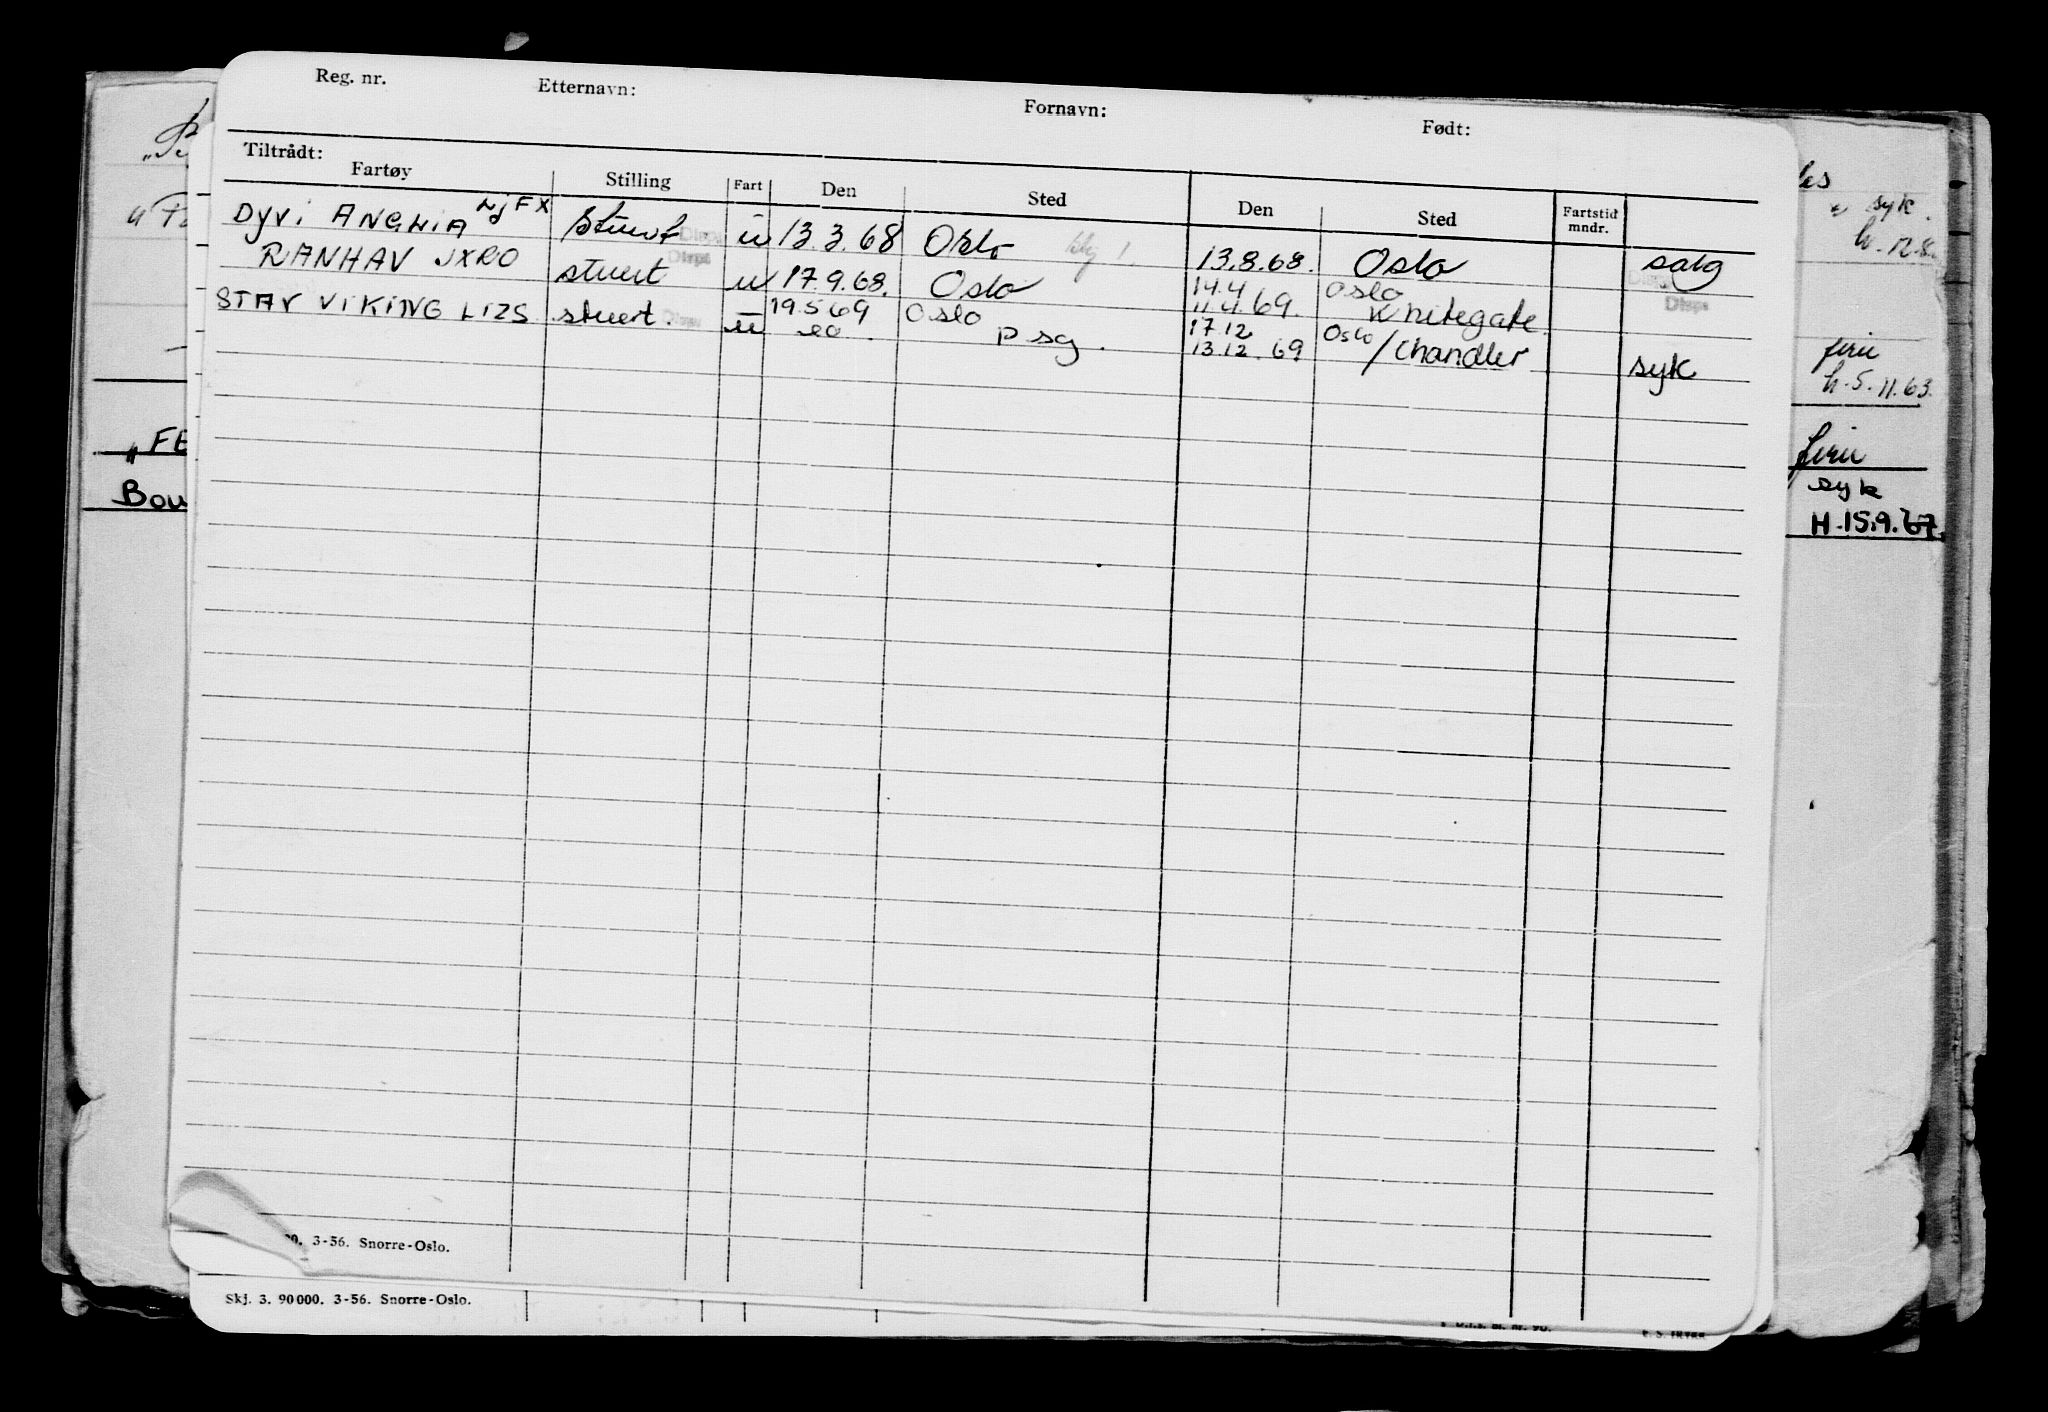 Reg. nr. Etternavn: Fornavn: Født:
Tiltrådt:
Fartøy Stilling Fart Den Sted Den Sted Fartstid mndr.
DYVI ANGLIA LJFX Stuert u 13.3.68 Oslo 13.8.68. Oslo salg
RANHAV JXRO stuert u 17.9.68. Oslo 14.4 Oslo
11.4.69. Whitegate
STAV VIKING LIZS stuert. u 19.5.69 Oslo 17.12 Oslo
20. psg. 13.12.69 / Chandler syk
3-56. Snorre-Oslo.
Skj. 3. 90000. 3-56. Snorre-Oslo.
„FE
Bou
syk.
h. 12.8.
ferie
h. 5.11.63.
ferie
syk
H. 15.9.67.